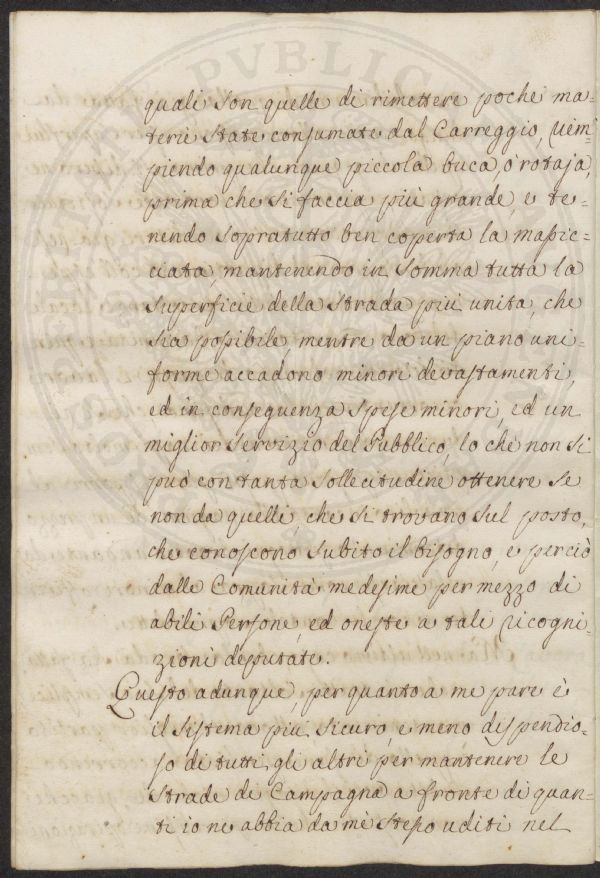 quali son quelle di rimettere poche ma=
terie state consumate dal Carreggio, riem=
piendo qualunque piccola buca, o rotaja,
prima che si faccia più grande, e te=
nendo sopratutto ben coperta la massic=
ciata, mantenendo in somma tutta la
superficie della strada più unita, che
sia possibile, mentre da un piano uni=
forme accadono minori devastamenti,
ed in conseguenza spese minori, ed un
miglior servizio del Pubblico, lo che non si
può con tanta sollecitudine ottenere se
non da quelli, che si trovano sul posto,
che conoscono subito il bisogno, e perciò
dalle Comunità medesime per mezzo di
abili Persone, ed oneste a tali ricogni=
zioni deputate.
Questo adunque, per quanto a me pare è
il sistema più sicuro, e meno dispendio=
so di tutti gli altri per mantenere le
strade di Campagna a fronte di quan=
ti io ne abbia da me stesso uditi nel
PVBLIC